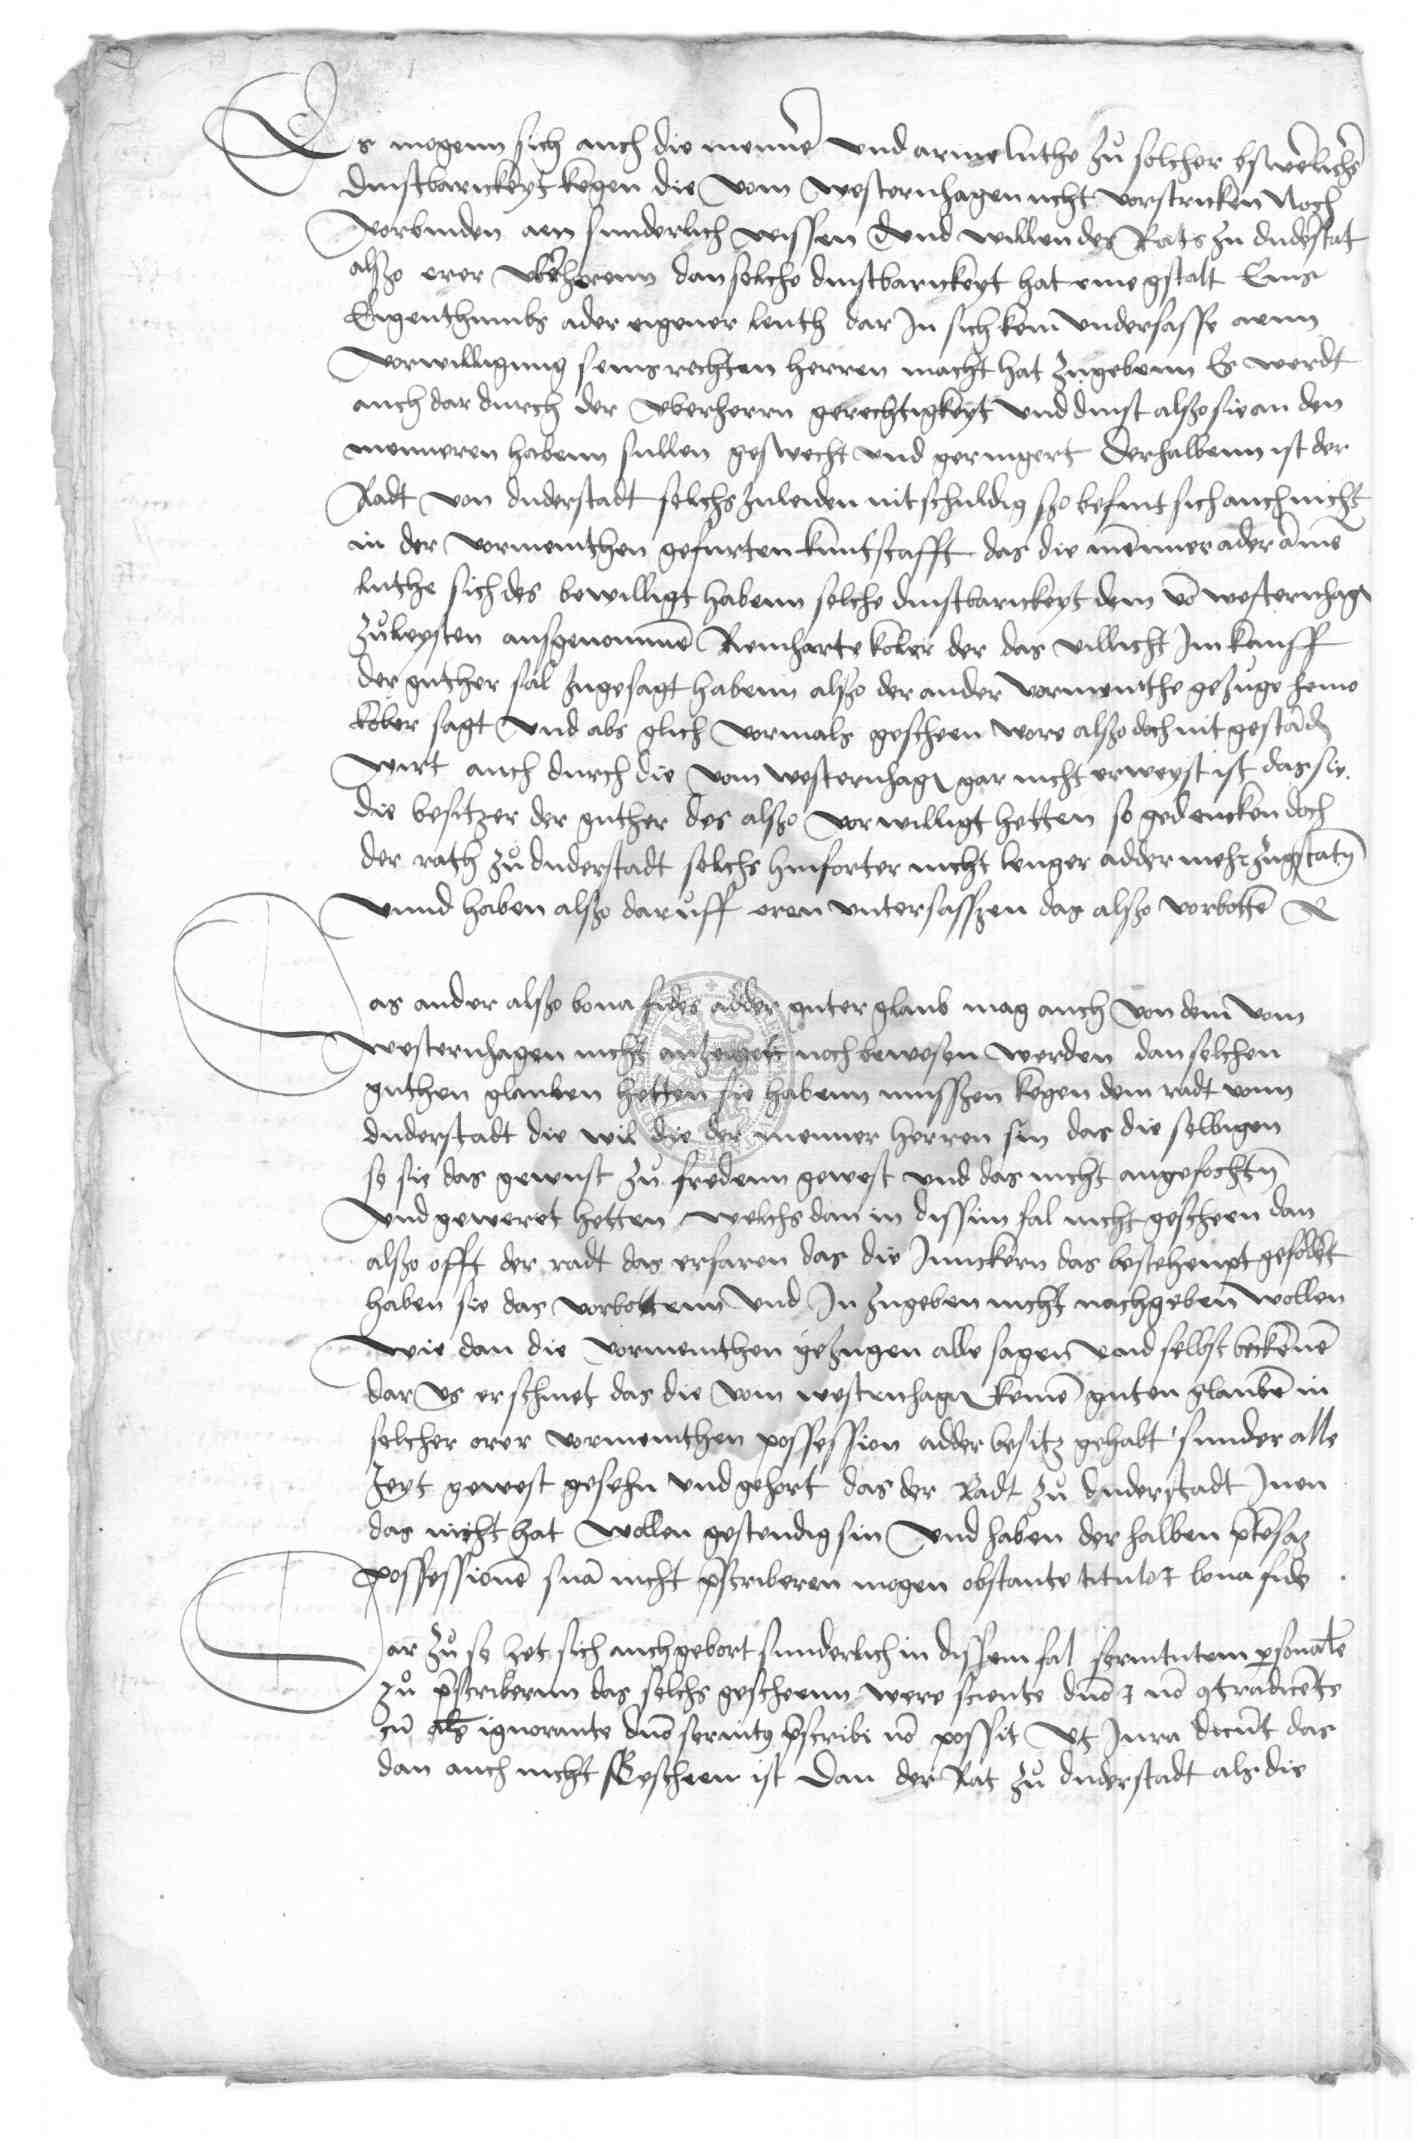 Es mogenn sich auch die menner und arme luthe zu solcher beswerlicher
dinstbarickeyt kegen die vom westernhagen nicht vorstricken Noch
vorbinden aen sunderlich wissen und willen des Rats zu duderstat
alßo erer uberherenn dan solche dinstbarickeyt hat eine gstalt Eins
Eigenthumbs ader eigener leuth dar in sich kein undersasse aenn
vorwilligung seins rechten herren macht hat zugebenn Es werdt
auch dar durch der uberherrn gerechtigkeyt und dinst alßo sie an den
menneren habenn sullen geswecht und geringert Derhalbenn ist der
Radt von duderstadt solchs zuleiden nit schuldig ßo befint sich auch nicht
in der vormeinthen gefurten kuntschafft das die menner ader arme
luthe sich des bewilligt habenn solche dinstbarickeyt dem von westernhagen
zuleysten ausgenommen Reinharte kober der das villicht Im kauff
der guther sal zugesagt habenn alßo der ander vormeinthe gezuge heine
kober sagt und abs glich vormals gescheen were alßo doch nit gestanden
wirt auch durch die vom westernhagen gar nicht erweyst ist das sie
die besitzer der guther des alßo vorwilligt hetten so gedencken doch
der rath zu duderstadt solchs hinforter nicht lenger adder mehr zugstaten
Unnd haben alßo daruff eren untersasszen das alßo vorbotten &
Das ander alßo bona fides adder guter glaub mag auch von dem vom
westernhagen nicht angezeigt noch bewesen werden dan solchen
guthen glauben hetten sie habenn mussen kegen dem radt vonn
duderstadt die wil die der menner herren sin das die selbigen
so sie das gewust zu fredenn gewest und das nicht angefochten
und geweret hetten welchs dan in dissim fal nicht gescheen dan
alßo offt der radt das erfaren das die Junckern das bestehenpt gefoddert
haben sie das vorbottenn und In zugeben nicht nachgeben wollen
wie dan die vormeinthen gezugen alle sagen und selbst beckennen
dar us erschinet das die vom westernhagen keinen guten glauben in
solcher orer vormeinthen possession adder besitz gehabt sunder alle
zeyt gewest gesehn und gehort das der Radt zu duderstadt Inen
das nicht hat wollen gestendig sin und haben der halben pretensam
possessionem suam nicht prescriberen mogen obstante titulo et bona fide
Dar zu so het sich auch gebort sunderlich in dissem fal servitutem personalem
zu prescriberenn das solchs gescheenn were sciente domino et non contradicente
cum als ignorante domino servitus prescribi non possit Ut Jura dicunt das
dan auch nicht Gescheen ist Dan der Rat zu duderstadt als die